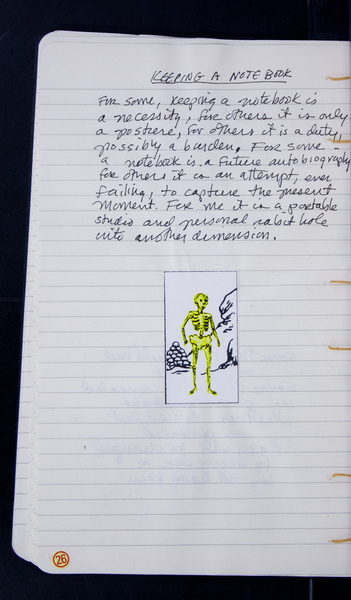 KEEPING A NOTEBOOK
For some, keeping a notebook is
a necessity, for others it is only
a posture, for others it is a duty,
possibly a burden. For some -
a notebook is a future autobiography
for others it is an attempt, ever
failing, to capture the present
moment. For me it is a portable
studio and personal rabit hole
into another dimension.
26